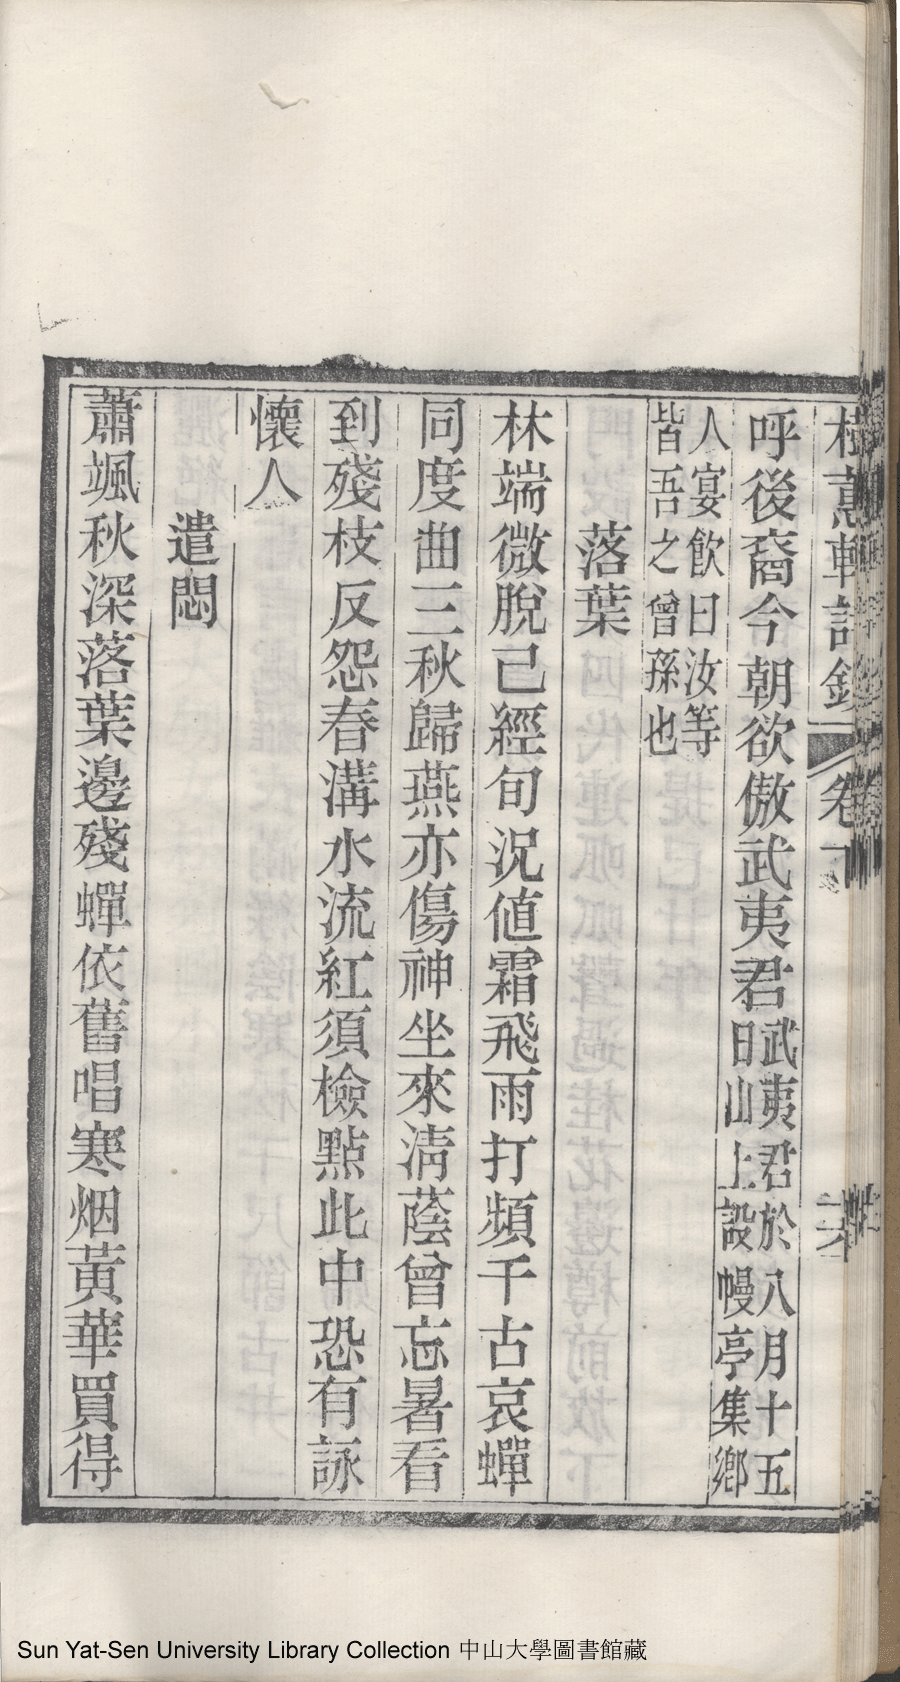 呼後裔今朝欲傲武夷君武夷君於八月十五日山上設幔亭集鄉
人宴飲曰汝等皆吾之曾孫也
落葉
林端微脫已經旬況値霜飛雨打頻千古哀蟬
同度曲三秋歸燕亦傷神坐來淸蔭曾忘暑看
到殘枝反怨春溝水流紅須檢點此中恐有詠
懷人
遣悶
蕭颯秋深落葉邊殘蟬依舊唱寒烟黃華買得
Sun Yat-Sen University Library Collection 中山大學圖書館藏